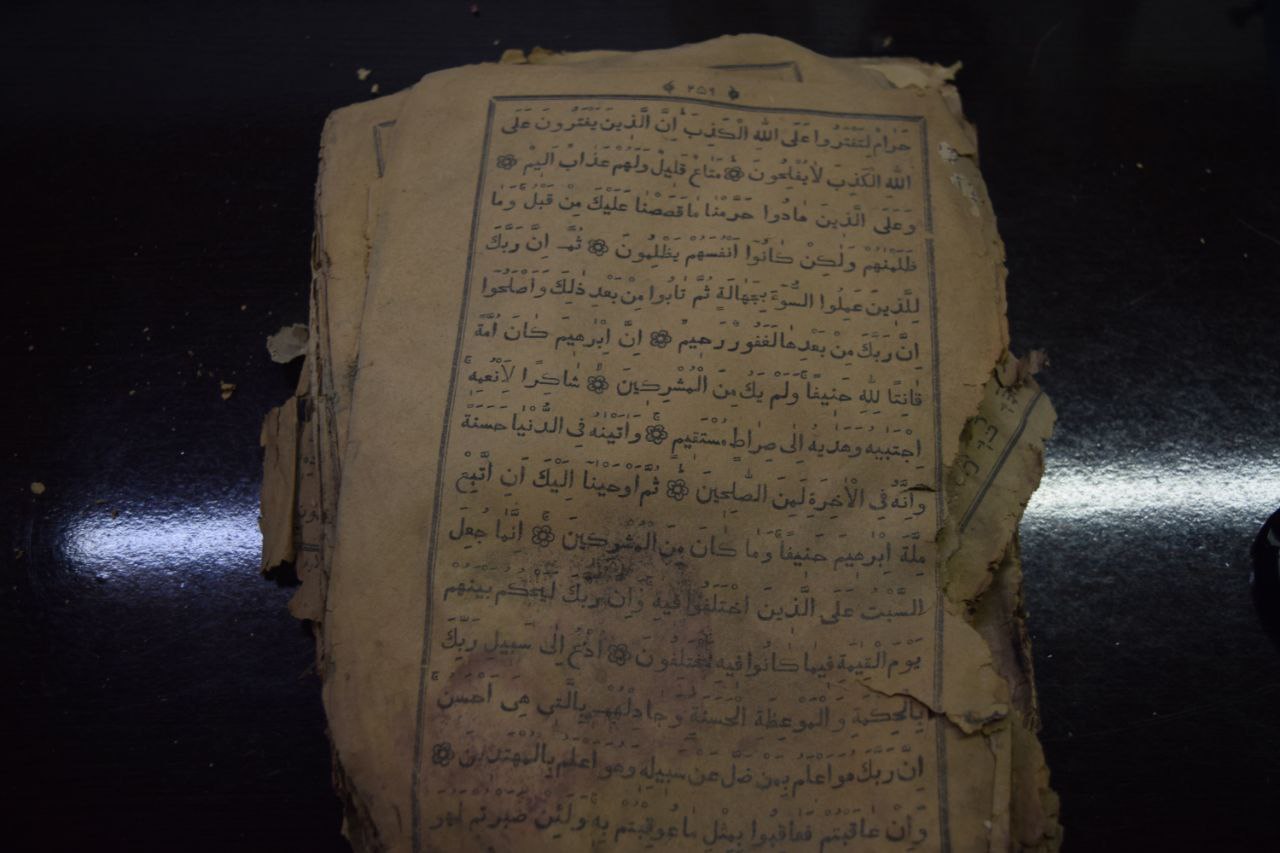 ﴿ ٢٥٩ ﴾
حَرَامٌ لِتَفْتَرُوا عَلَى اللّٰهِ الْكَذِبَ اِنَّ الَّذِينَ يَفْتَرُونَ عَلَى
اللّٰهِ الْكَذِبَ لَا يُفْلِحُونَ ۞ مَتَاعٌ قَلِيلٌ وَلَهُمْ عَذَابٌ اَلِيمٌ ۞
وَعَلَى الَّذِينَ هَادُوا حَرَّمْنَا مَا قَصَصْنَا عَلَيْكَ مِنْ قَبْلُ وَمَا
ظَلَمْنٰهُمْ وَلٰكِنْ كَانُوٓا اَنْفُسَهُمْ يَظْلِمُونَ ۞ ثُمَّ اِنَّ رَبَّكَ
لِلَّذِينَ عَمِلُوا السُّوٓءَ بِجَهَالَةٍ ثُمَّ تَابُوا مِنْ بَعْدِ ذٰلِكَ وَاَصْلَحُوٓا
اِنَّ رَبَّكَ مِنْ بَعْدِهَا لَغَفُورٌ رَحِيمٌ ۞ اِنَّ اِبْرٰهِيمَ كَانَ اُمَّةً
قَانِتًا لِلّٰهِ حَنِيفًا وَلَمْ يَكُ مِنَ الْمُشْرِكِينَ ۞ شَاكِرًا لِاَنْعُمِهِ
اِجْتَبٰيهُ وَهَدٰيهُ اِلٰى صِرَاطٍ مُسْتَقِيمٍ ۞ وَاٰتَيْنٰهُ فِى الدُّنْيَا حَسَنَةً
وَاِنَّهُ فِى الْاٰخِرَةِ لَمِنَ الصَّالِحِينَ ۞ ثُمَّ اَوْحَيْنَآ اِلَيْكَ اَنِ اتَّبِعْ
مِلَّةَ اِبْرٰهِيمَ حَنِيفًا وَمَا كَانَ مِنَ الْمُشْرِكِينَ ۞ اِنَّمَا جُعِلَ
السَّبْتُ عَلَى الَّذِينَ اخْتَلَفُوا فِيهِ وَاِنَّ رَبَّكَ لَيَحْكُمُ بَيْنَهُمْ
يَوْمَ الْقِيٰمَةِ فِيمَا كَانُوا فِيهِ يَخْتَلِفُونَ ۞ اُدْعُ اِلٰى سَبِيلِ رَبِّكَ
بِالْحِكْمَةِ وَالْمَوْعِظَةِ الْحَسَنَةِ وَجَادِلْهُمْ بِالَّتِى هِىَ اَحْسَنُ
اِنَّ رَبَّكَ هُوَ اَعْلَمُ بِمَنْ ضَلَّ عَنْ سَبِيلِهِ وَهُوَ اَعْلَمُ بِالْمُهْتَدِينَ ۞
وَاِنْ عَاقَبْتُمْ فَعَاقِبُوا بِمِثْلِ مَا عُوقِبْتُمْ بِهِ وَلَئِنْ صَبَرْتُمْ لَهُوَ